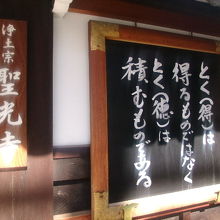 浄土宗
聖光寺
とく(得)は
得るものではなく
とく(徳)は
積むものである